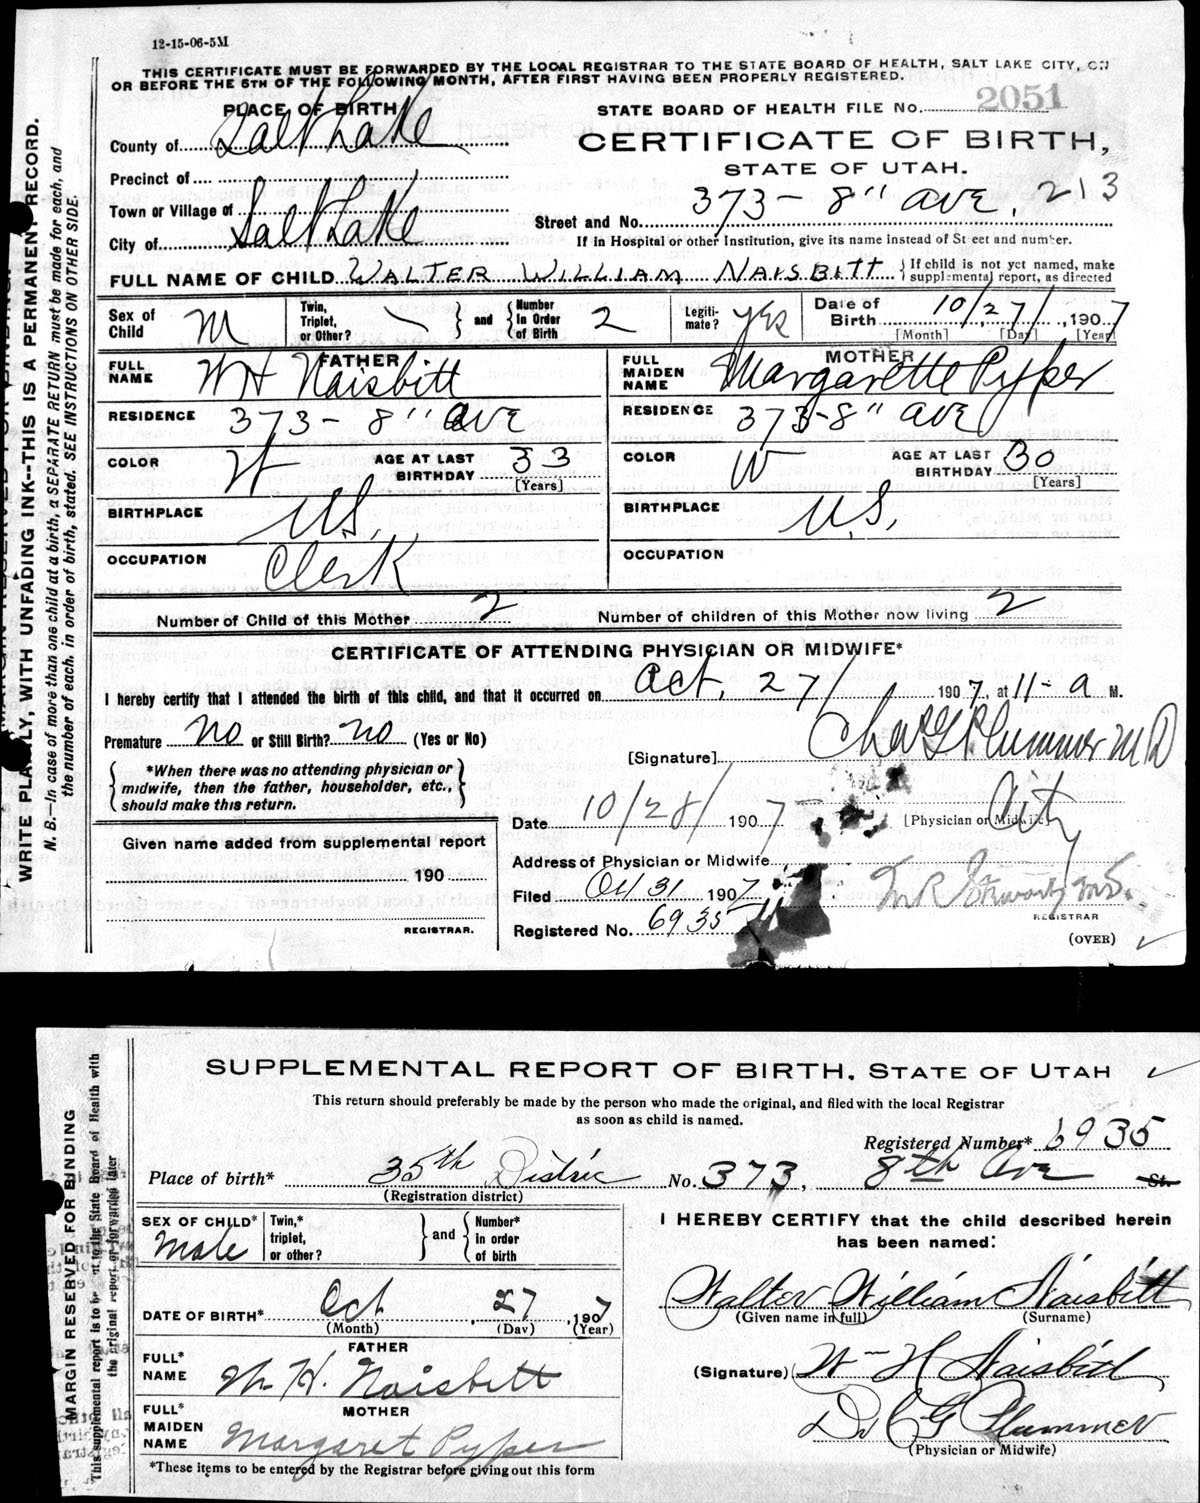 12-15-06-5M
THIS CERTIFICATE MUST BE FORWARDED BY THE LOCAL REGISTRAR TO THE STATE BOARD OF HEALTH, SALT LAKE CITY, ON
OR BEFORE THE 5TH OF THE FOLLOWING MONTH, AFTER FIRST HAVING BEEN PROPERLY REGISTERED.
WRITE PLAINLY, WITH UNFADING INK--THIS IS A PERMANENT RECORD.
N. B.—In case of more than one child at a birth, a SEPARATE RETURN must be made for each, and
the number of each, in order of birth, stated. SEE INSTRUCTIONS ON OTHER SIDE.
PLACE OF BIRTH
County of Salt Lake
Precinct of
Town or Village of
City of Salt Lake
STATE BOARD OF HEALTH FILE NO. 2051
CERTIFICATE OF BIRTH,
STATE OF UTAH.
Street and No. 373 - 8" AVE, 213
If in Hospital or other Institution, give its name instead of Street and number.
FULL NAME OF CHILD WALTER WILLIAM NAISBITT { If child is not yet named, make
supplemental report, as directed
Sex of Child M Twin, Triplet, or Other? \ } and { Number In Order of Birth 2 Legitimate? yes Date of Birth 10/27/, 1907
[Month] [Day] [Year]
FATHER
FULL NAME WH Naisbitt
RESIDENCE 373 - 8" AVE
COLOR W AGE AT LAST BIRTHDAY 33
[Years]
BIRTHPLACE U.S.
OCCUPATION Clerk
MOTHER
FULL MAIDEN NAME Margarette Pyper
RESIDENCE 373-8" AVE
COLOR W AGE AT LAST BIRTHDAY 30
[Years]
BIRTHPLACE U.S.
OCCUPATION
Number of Child of this Mother 2 Number of children of this Mother now living 2
CERTIFICATE OF ATTENDING PHYSICIAN OR MIDWIFE*
I hereby certify that I attended the birth of this child, and that it occurred on Oct. 27/ 1907, at 11- a M.
Premature no or Still Birth? no (Yes or No)
[Signature] Chas G Plummer MD
*When there was no attending physician or
midwife, then the father, householder, etc.,
should make this return.
Date 10/28/ 1907
[Physician or Midwife]
City
Given name added from supplemental report
190
REGISTRAR.
Address of Physician or Midwife
Filed Oct 31 1907
Registered No. 6935
REGISTRAR
(OVER)
MARGIN RESERVED FOR BINDING
This supplemental report is to be to the State Board of Health with
the original report or forwarded later
SUPPLEMENTAL REPORT OF BIRTH, STATE OF UTAH
This return should preferably be made by the person who made the original, and filed with the local Registrar
as soon as child is named.
Registered Number* 6935
Place of birth* 35th Distric No. 373, 8th Ave St.
(Registration district)
SEX OF CHILD* Male Twin,* triplet, or other? } and { Number* in order of birth
DATE OF BIRTH* Oct 27, 1907
(Month) (Day) (Year)
FATHER
FULL* NAME Wm H. Naisbitt
MOTHER
FULL* MAIDEN NAME Margaret Pyper
*These items to be entered by the Registrar before giving out this form
I HEREBY CERTIFY that the child described herein
has been named:
Walter William Naisbitt
(Given name in full) (Surname)
(Signature) Wm H Naisbitt
Dr C G Plummer
(Physician or Midwife)